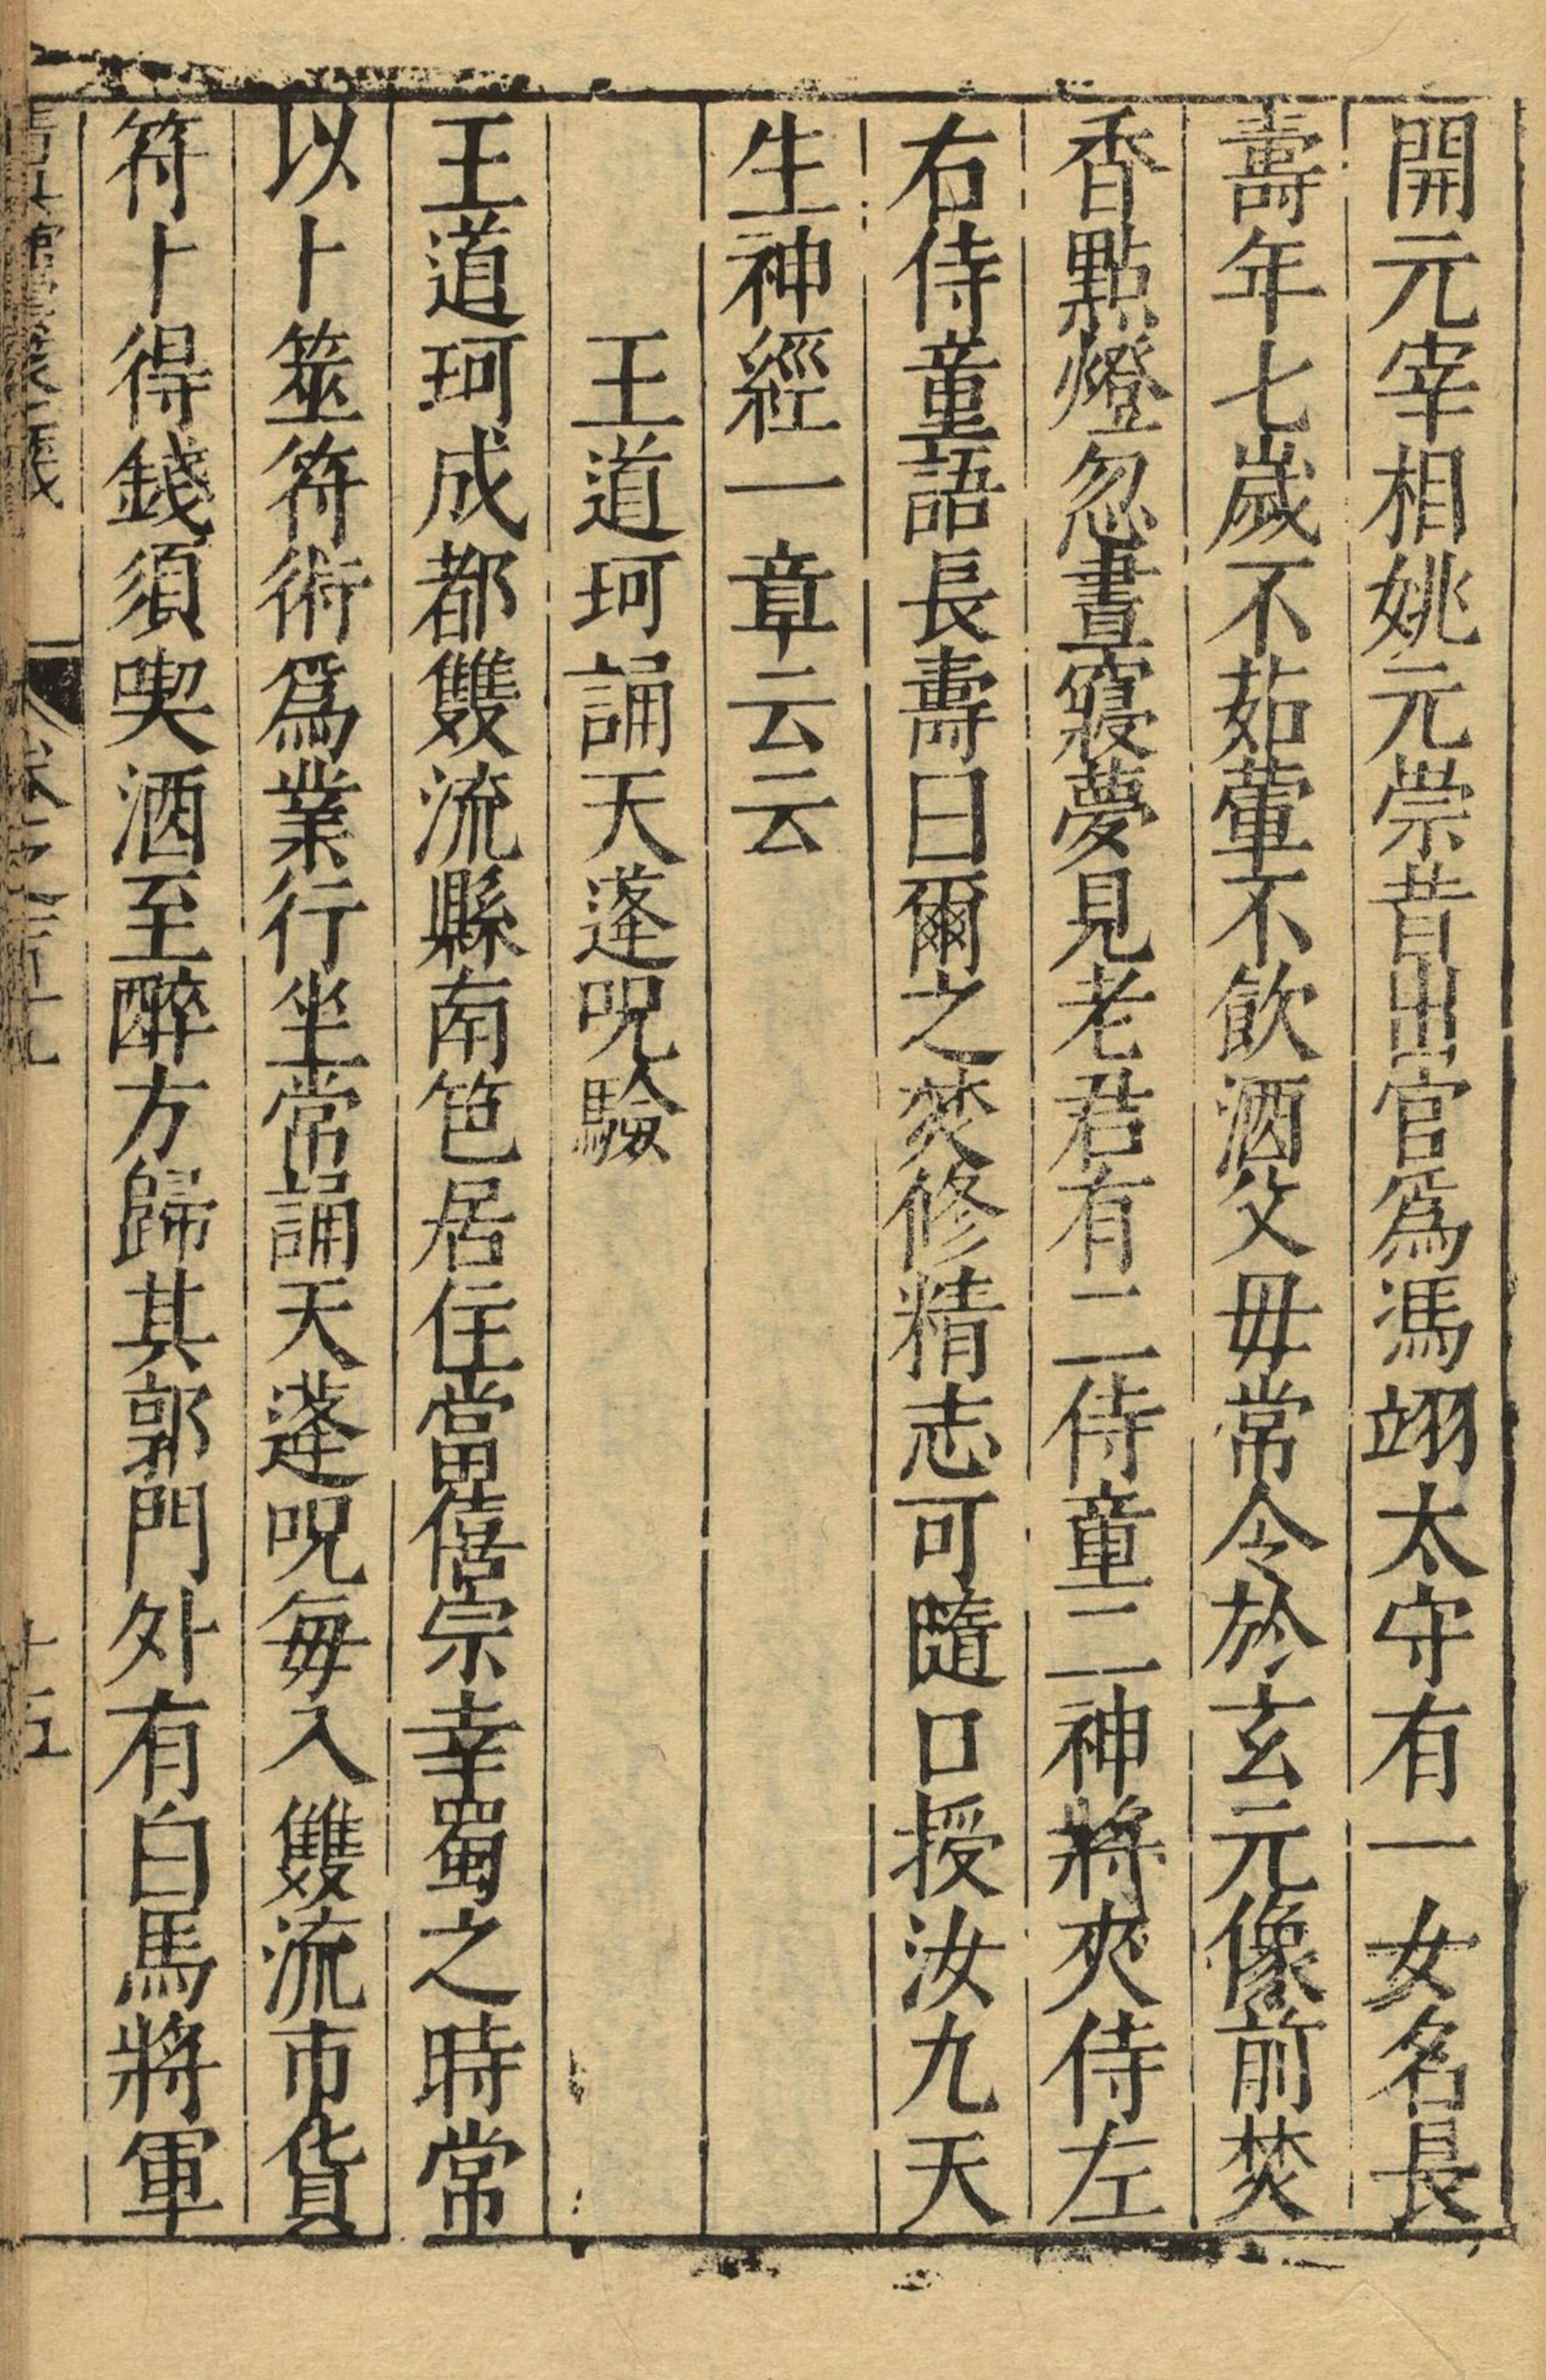 開元宰相姚元崇昔出官爲馮翊太守有一女名長
壽年七歲不茹葷不飲酒父毋常令於玄元像前焚
香點燈忽晝寢夢見老君有二侍童二神將夾侍左
右侍童語長壽曰爾之焚修精志可隨口授汝九天
生神經一章云云
王道珂誦天蓬呪驗
王道珂成都雙流縣南笆居住當僖宗幸蜀之時常
以卜筮符術爲業行坐常誦天蓬呪每入雙流市貨
符卜得錢須喫酒至醉方歸其郭門外有白馬將軍
十五